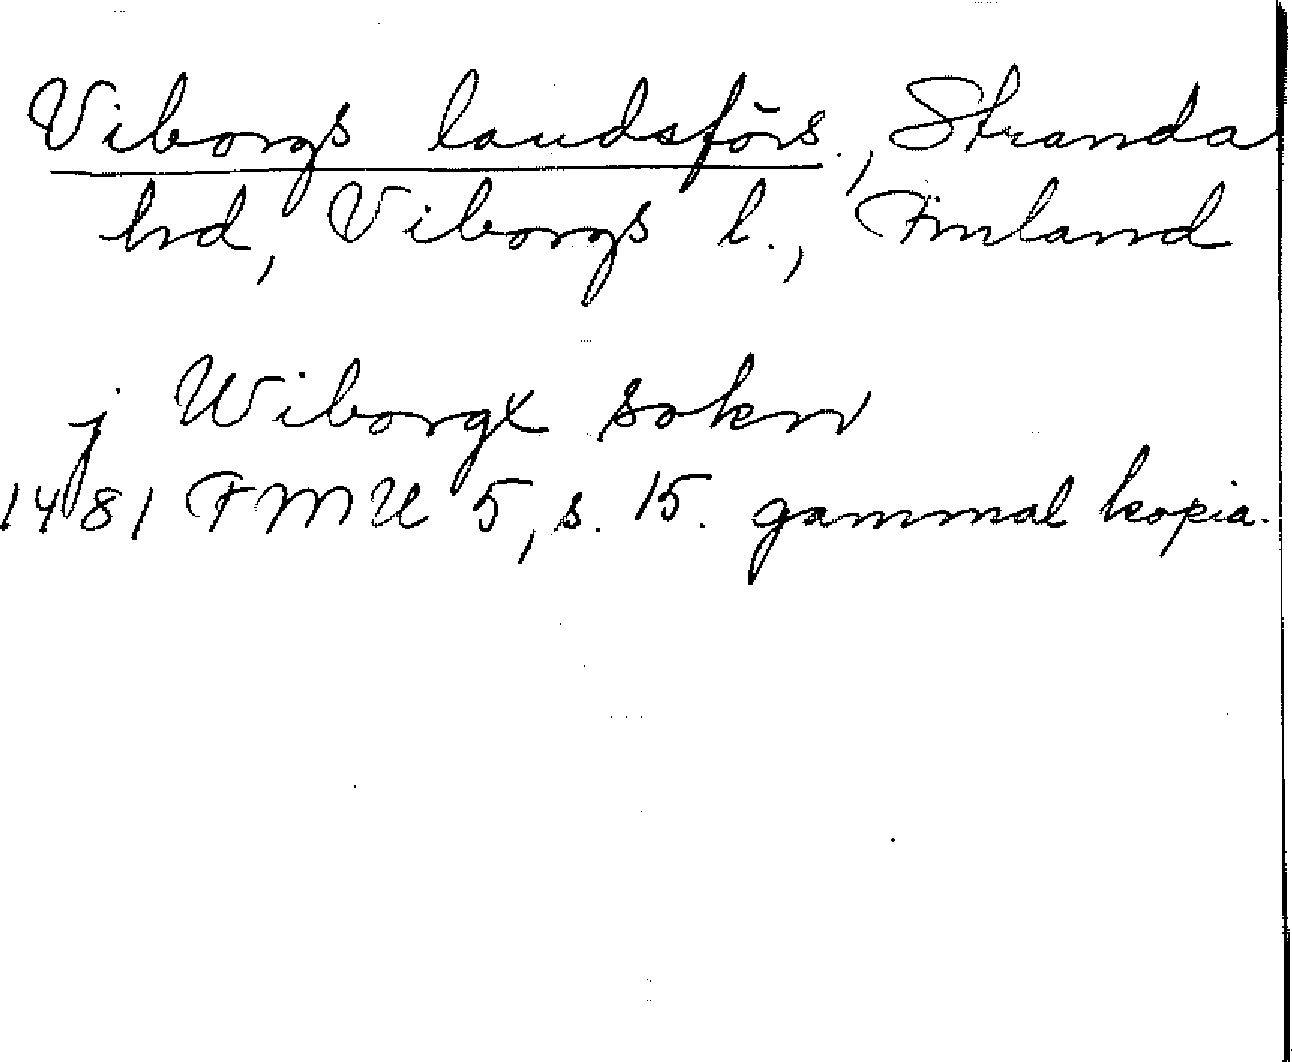 Viborgs landsförs., Stranda
hd, Viborgs l., Finland
j Wiborgx sokn
1481 FMU 5, s. 15. gammal kopia.